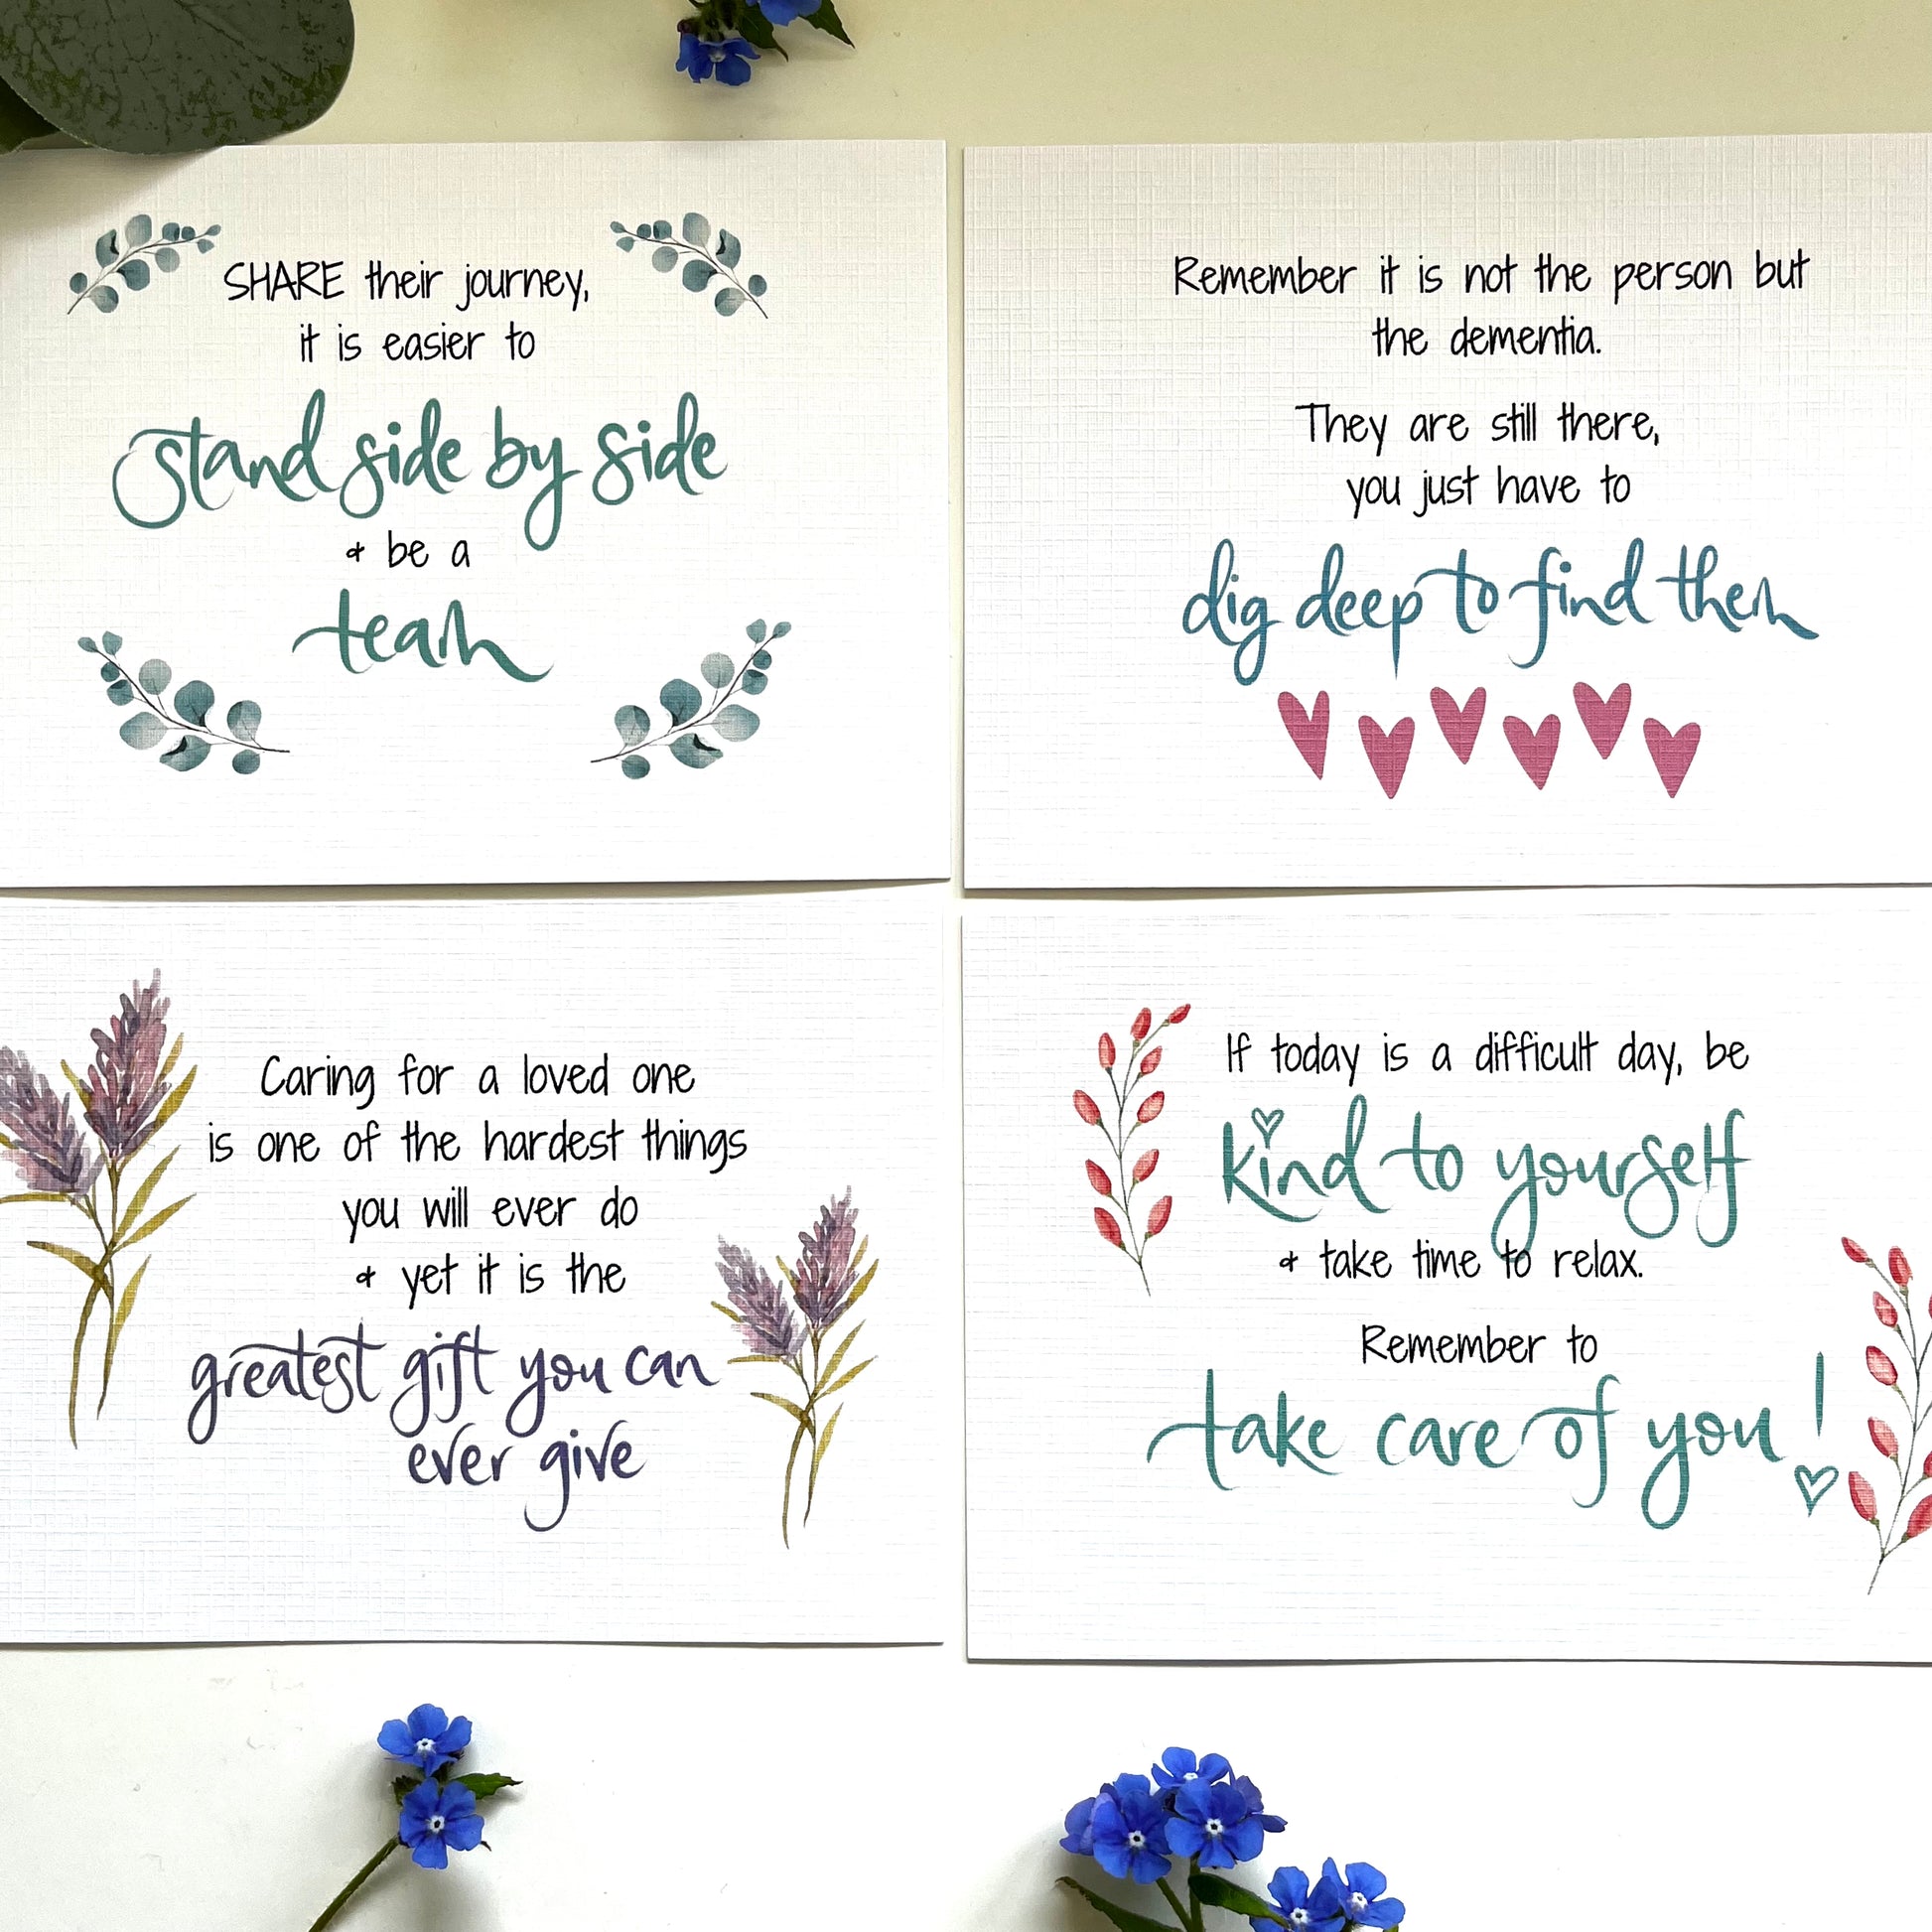 SHARE their journey,
it is easier to
stand side by side
& be a
team
Remember it is not the person but
the dementia.
They are still there,
you just have to
dig deep to find them
Caring for a loved one
is one of the hardest things
you will ever do
& yet it is the
greatest gift you can
ever give
If today is a difficult day, be
kind to yourself
& take time to relax.
Remember to
take care of you!